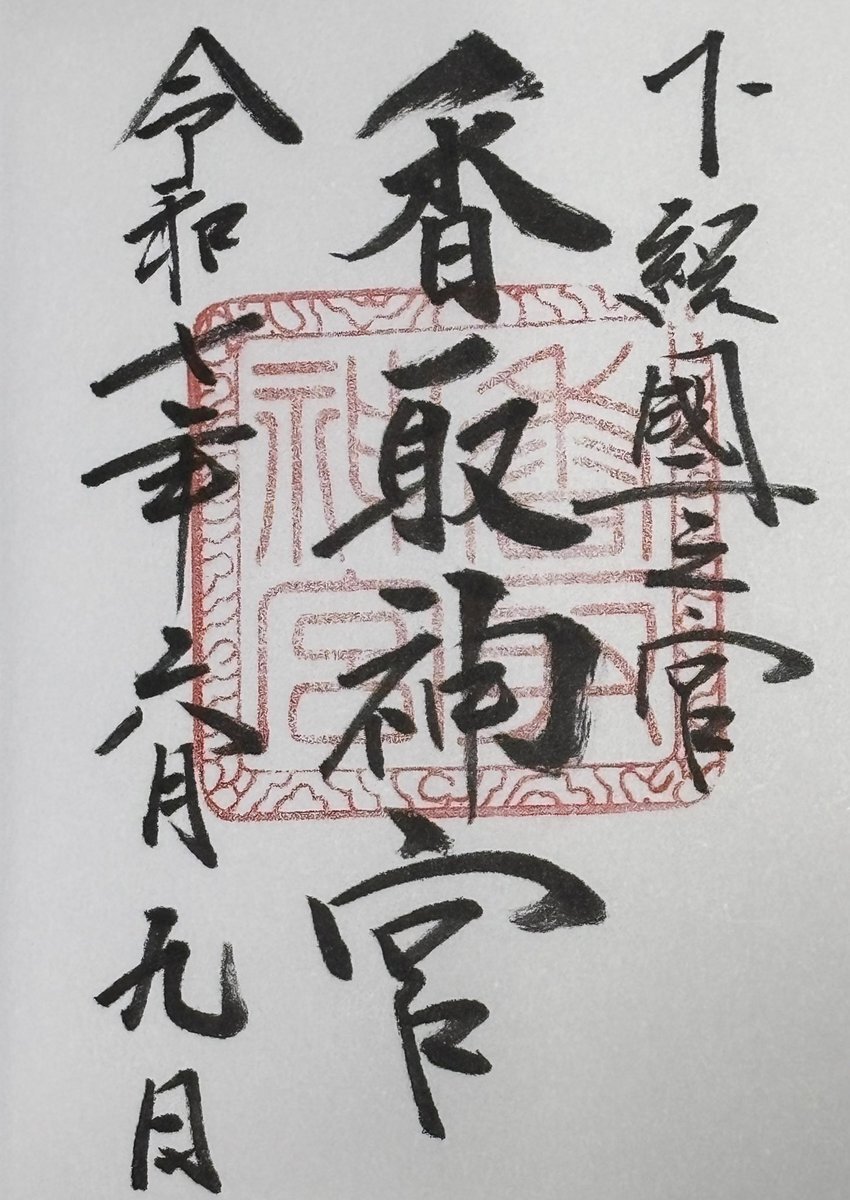 下総國一之宮
香取神宮
令和七年六月九日
香取神宮